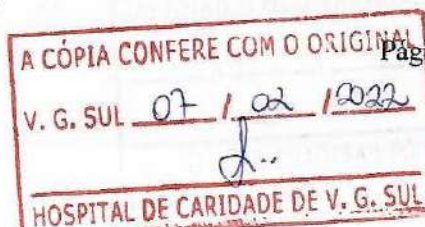 A CÓPIA CONFERE COM O ORIGINAL
Pág
V. G. SUL 07 / 02 / 2022
HOSPITAL DE CARIDADE DE V. G. SUL